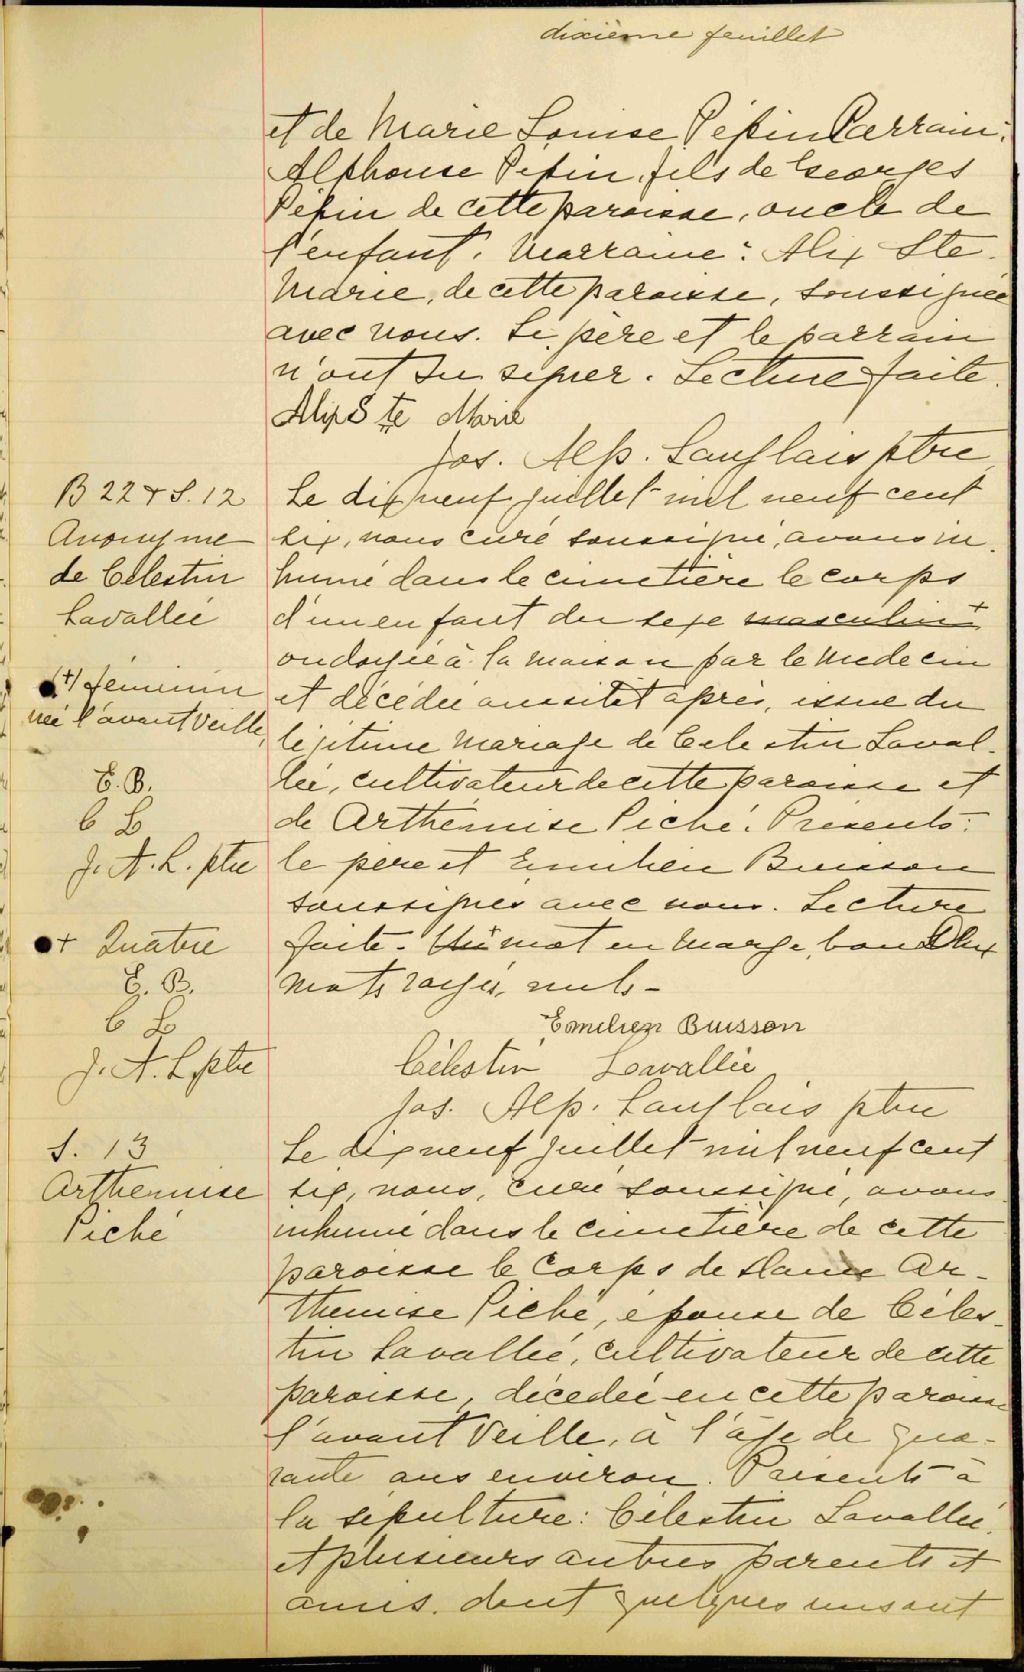 dixième feuillet
et de Marie Louise Pépin Parrain:
Alphonse Pépin, fils de Georges
Pépin de cette paroisse, oncle de
l'enfant. Marraine: Alix Ste.
Marie, de cette paroisse, soussignée
avec nous. Le père et le parrain
n'ont su signer. Lecture faite.
Alix Ste Marie
Jos. Alp. Langlais ptre
B 22 + S. 12
Anonyme
de Célestin
Lavallée
(+) féminin
née l'avant veille,
E. B.
C L
J. A. L. ptre
+ Quatre
E. B.
C L
J. A. L ptre
Le dix neuf juillet mil neuf cent
six, nous curé soussigné, avons in-
humé dans le cimetière le corps
d'un enfant du sexe masculin +
ondoyée à la maison par le medecin
et décédée aussitôt après, issue du
légitime mariage de Célestin Laval-
lée, cultivateur de cette paroisse et
de Arthémise Piché. Présents:
le père et Emilien Buisson
soussignés avec nous. Lecture
faite. Un + mot en marge, bon Deux
mots rayés, nuls -
Emilien Buisson
Célestin Lavallée
Jos. Alp. Langlais ptre
S. 13
Arthemise
Piché
Le dix neuf juillet mil neuf cent
six, nous, curé soussigné, avons
inhumé dans le cimetière de cette
paroisse le corps de Dame Ar-
themise Piché, épouse de Céles-
tin Lavallée, cultivateur de cette
paroisse, décédée en cette paroisse
l'avant veille, à l'âge de qua-
rante ans environ. Présents à
la sépulture: Célestin Lavallée,
et plusieurs autres parents et
amis. dont quelques uns ont